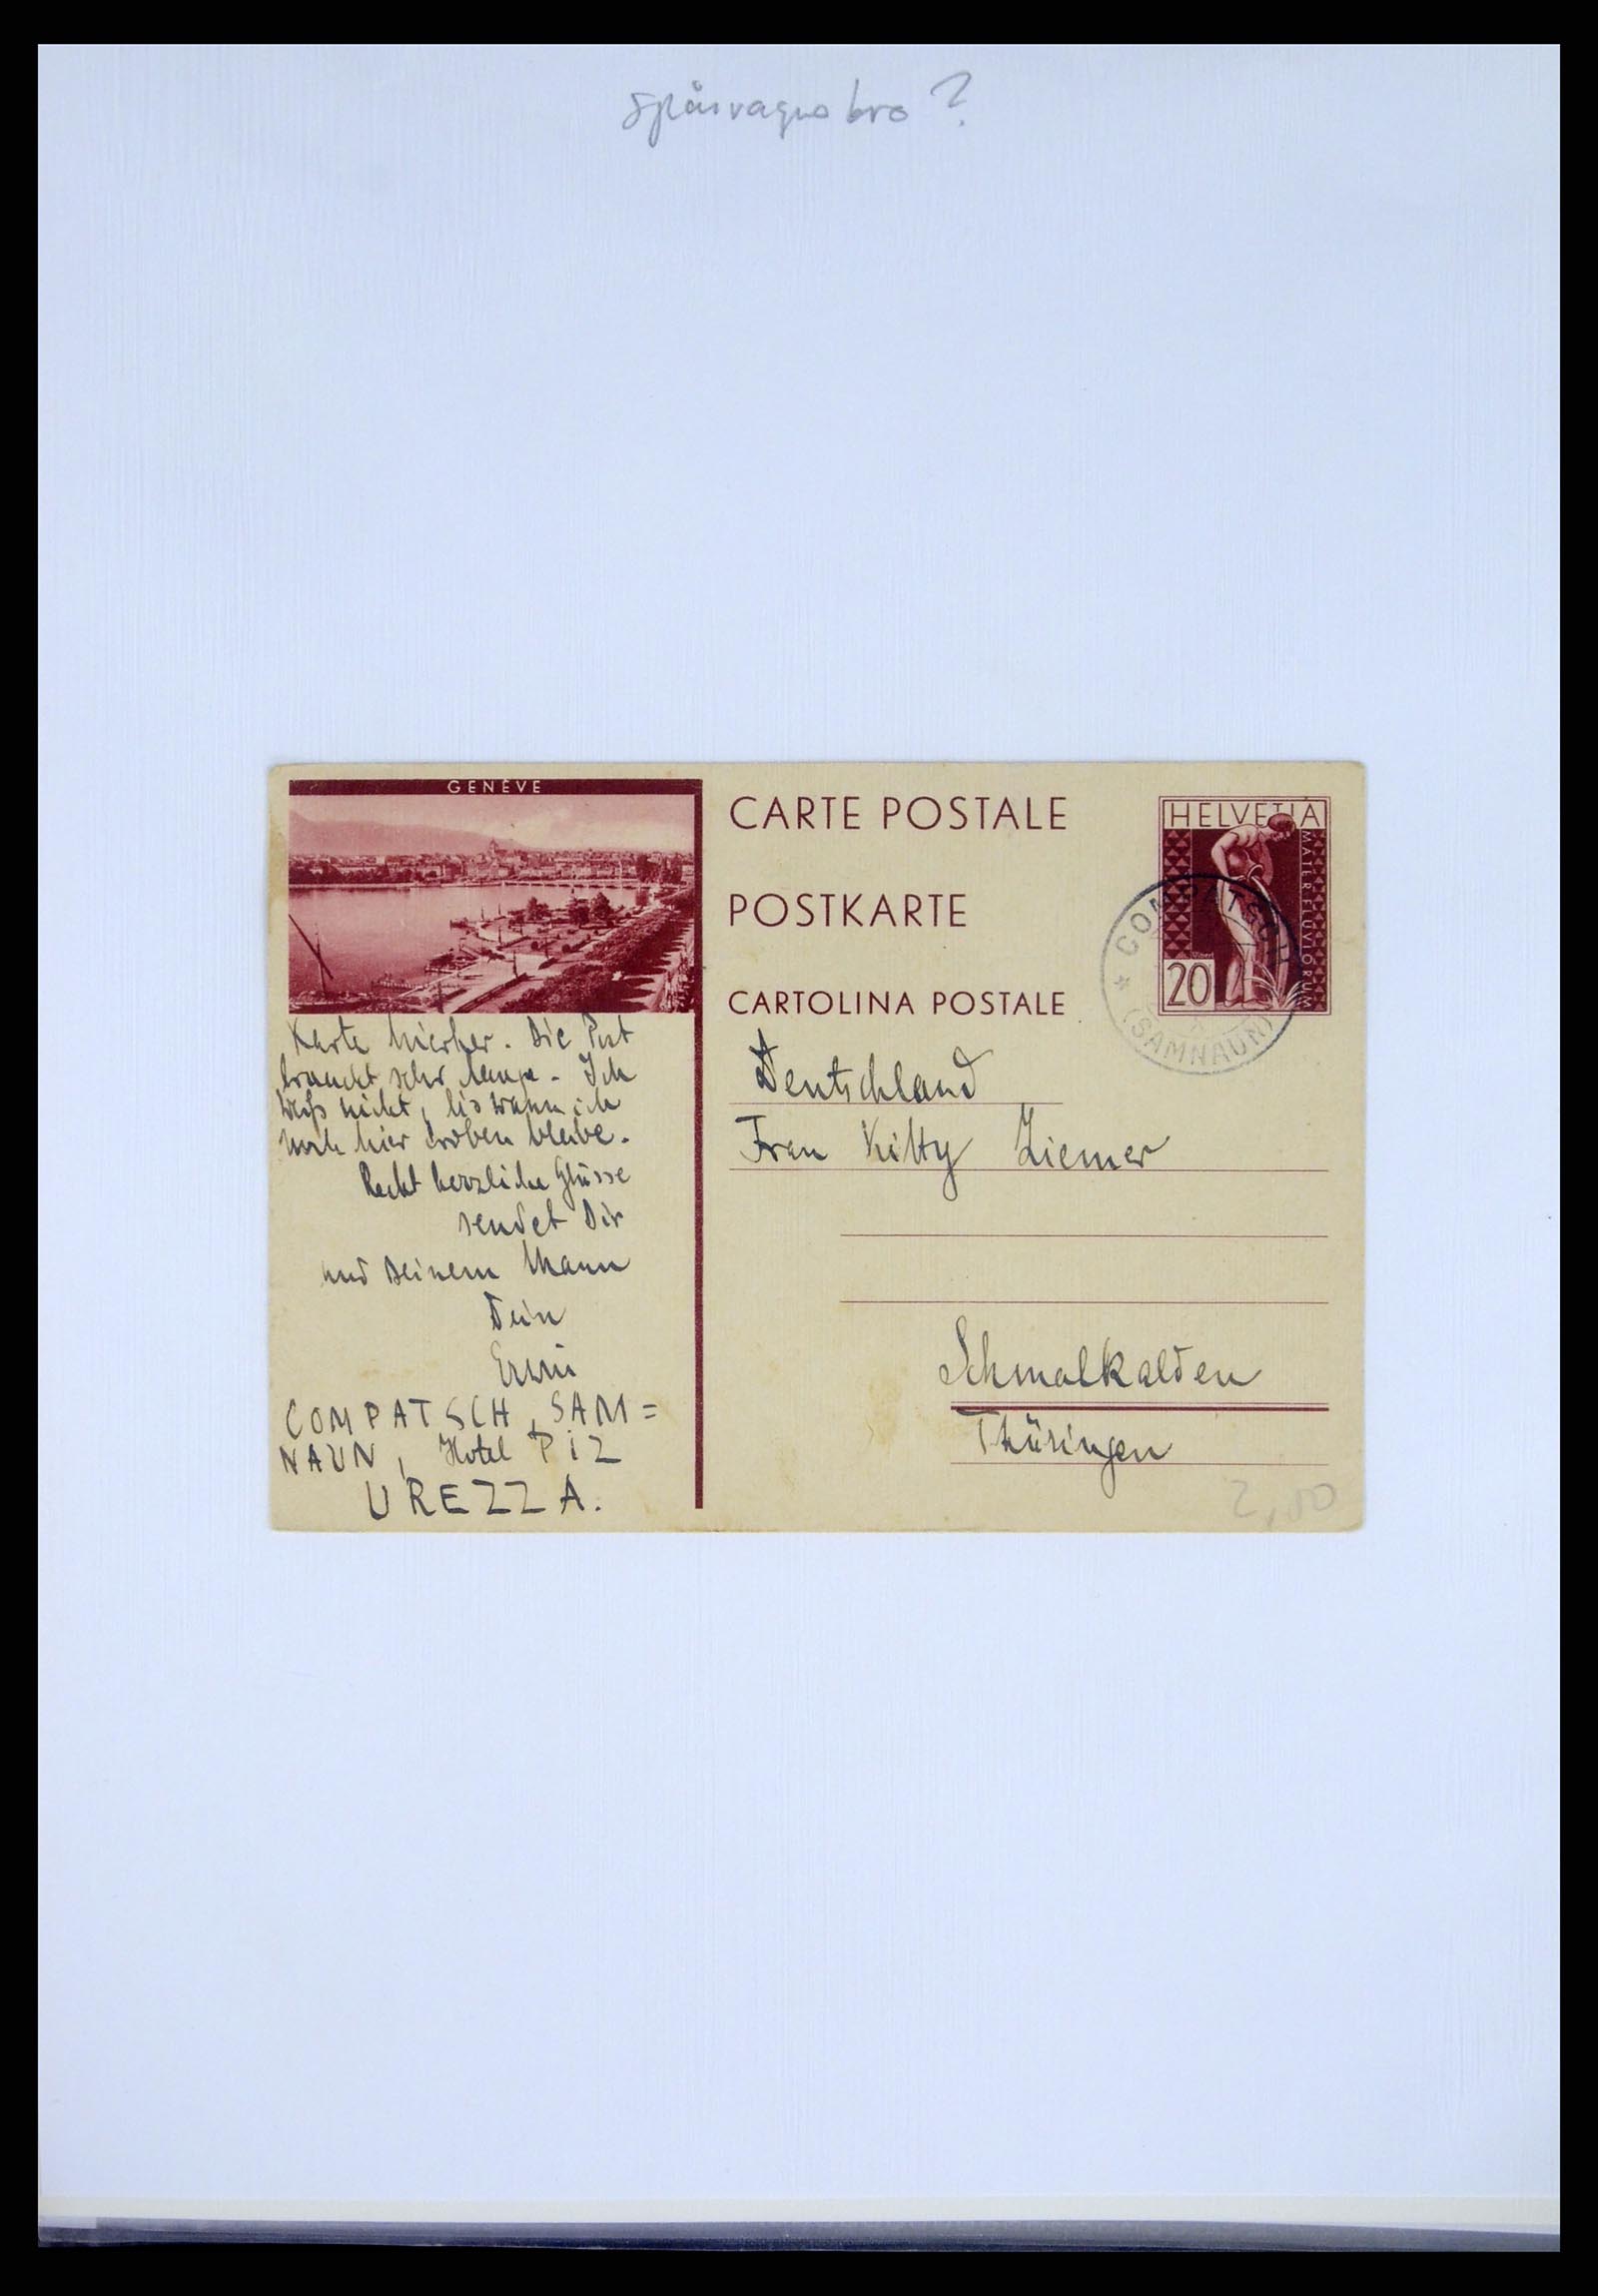 spårvagnsbro?
GENÈVE
CARTE POSTALE
POSTKARTE
CARTOLINA POSTALE
HELVETIA
MATER FLUVIORUM
20
* COMPATSCH
(SAMNAUN)
Karte hierher. Die Post
braucht sehr lange. Ich
weiß nicht, bis wann ich
noch hier droben bleibe.
Recht herzliche Grüsse
sendet Dir
und Deinem Mann
Dein
Erwin
COMPATSCH, SAM=
NAUN, Hotel PiZ
UREZZA.
Deutschland
Frau Kitty Ziemer
Schmalkalden
Thüringen
2,00